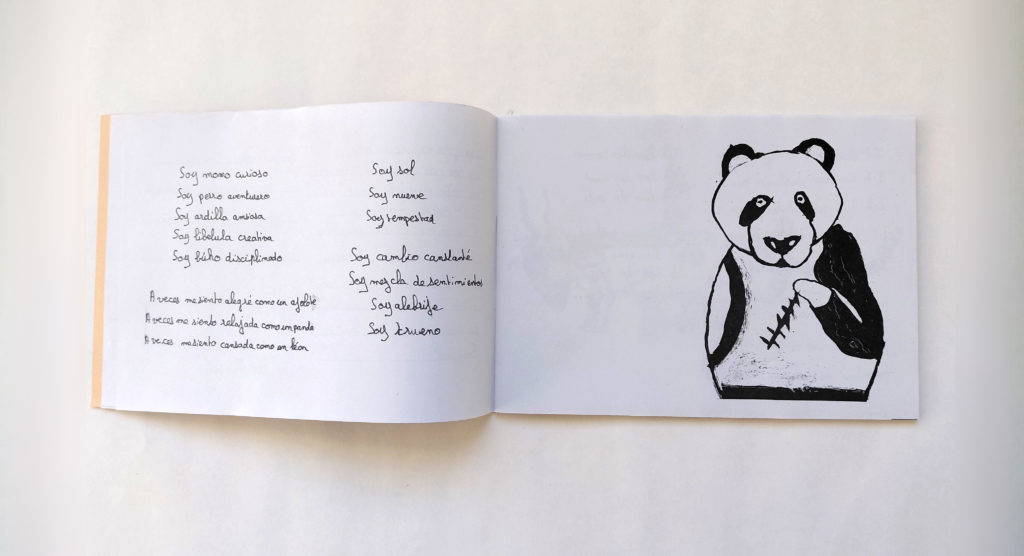 Soy mono curioso
Soy perro aventurero
Soy ardilla ansiosa
Soy libelula creativa
Soy búho disciplinado
A veces me siento alegré como un ajolote
A veces me siento relajada como un panda
A veces me siento cansada como un léon
Soy sol
Soy nueve
Soy tempestad
Soy cambio constanté
Soy mezcla de sentimientos
Soy alebrije
Soy trueno